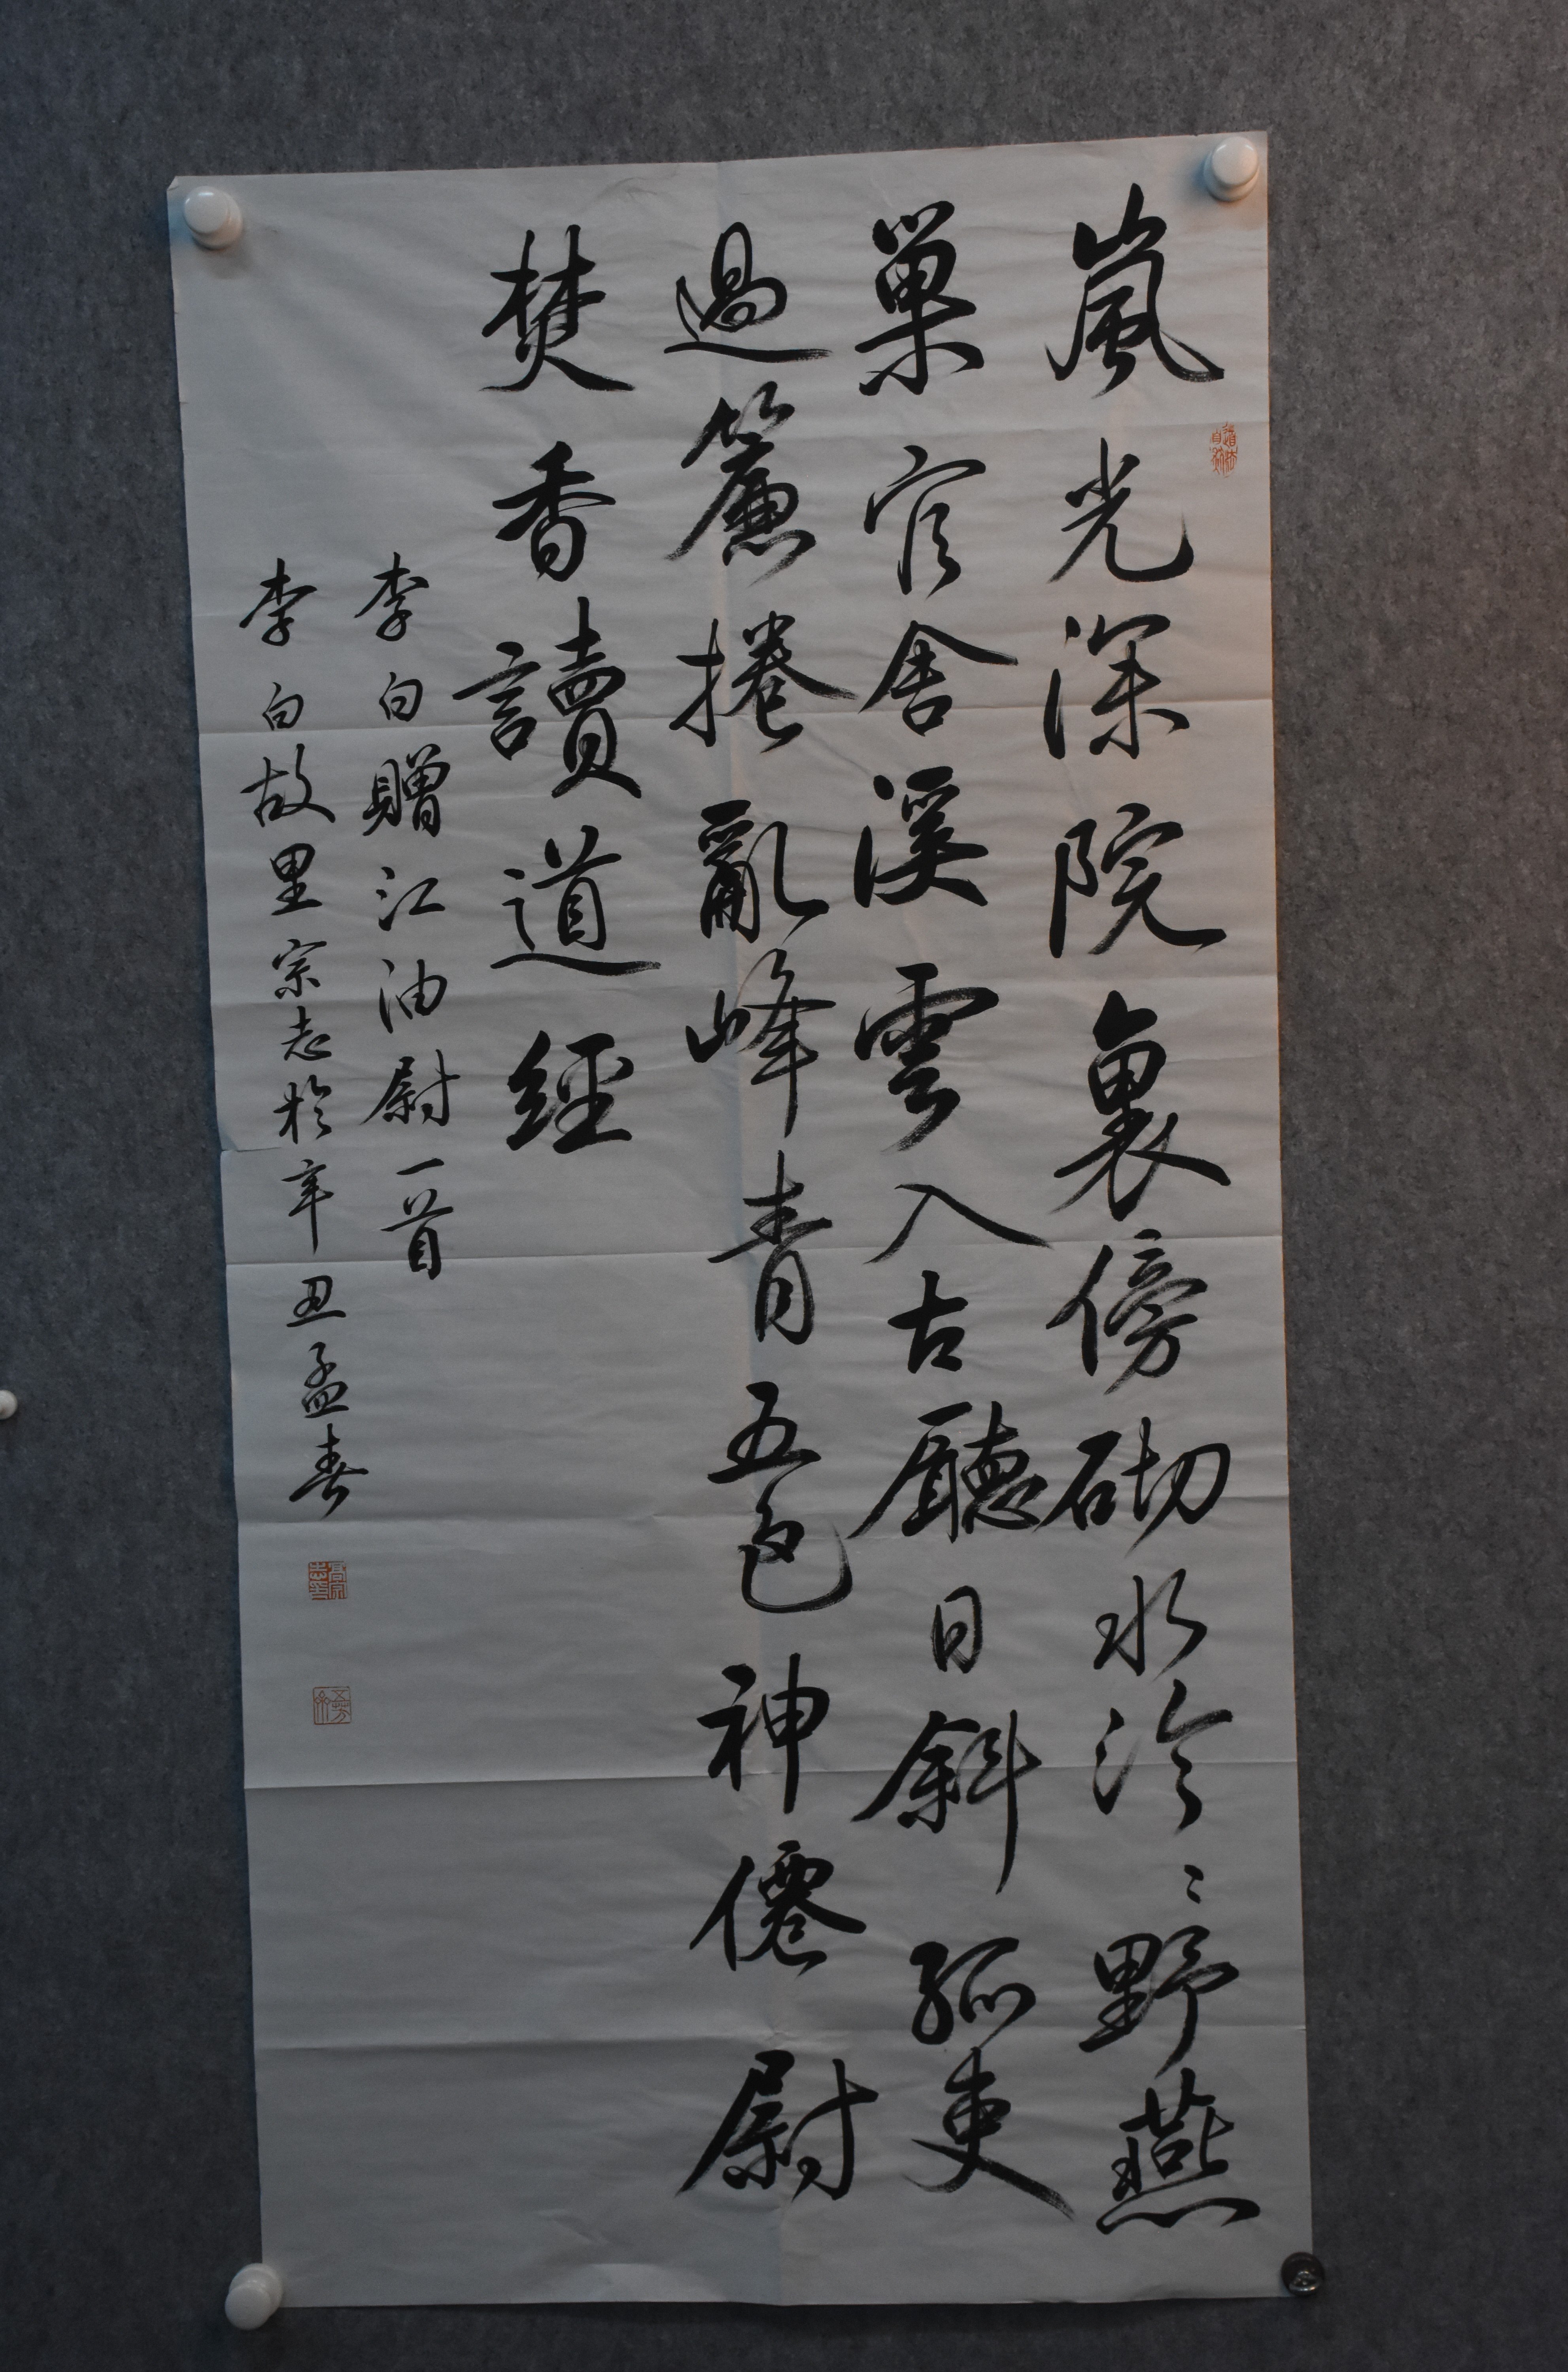 嵐光深院裏傍砌水泠〻野燕
巢官舍溪雲入古廳日斜孤吏
過簾捲亂峰青五色神僊尉
焚香讀道經
李白贈江油尉一首
李白故里宗志於辛丑孟春